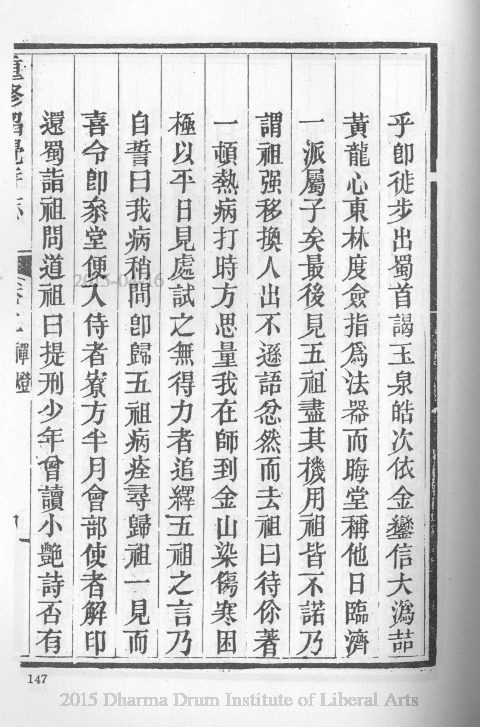 乎卽徙步出蜀首謁玉泉皓次依金鑾信大潙喆
黃龍心東林度僉指爲法器而晦堂稱他日臨濟
一派屬子矣最後見五祖盡其機用祖皆不諾乃
謂祖强移換人出不遜語忿然而去祖曰待你著
一頓熱病打時方思量我在師到金山染傷寒困
極以平日見處試之無得力者追繹五祖之言乃
自誓曰我病稍間卽歸五祖病痊尋歸祖一見而
喜令卽叅堂便入侍者寮方半月會部使者解印
還蜀詣祖問道祖曰提刑少年曾讀小艶詩否有
重修昭覺寺志
禪燈
147
2015 Dharma Drum Institute of Liberal Arts